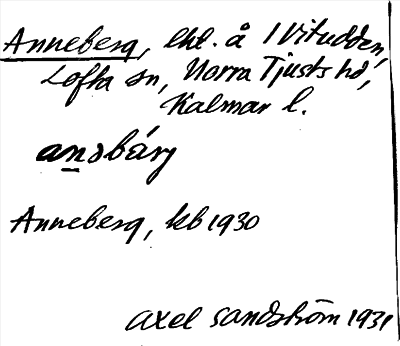 Anneberg, lht. å 1 Vitudden,
Lofta sn, Norra Tjusts hd,
Kalmar l.
ansbärj
Anneberg, kb 1930
Axel Sandström 1931